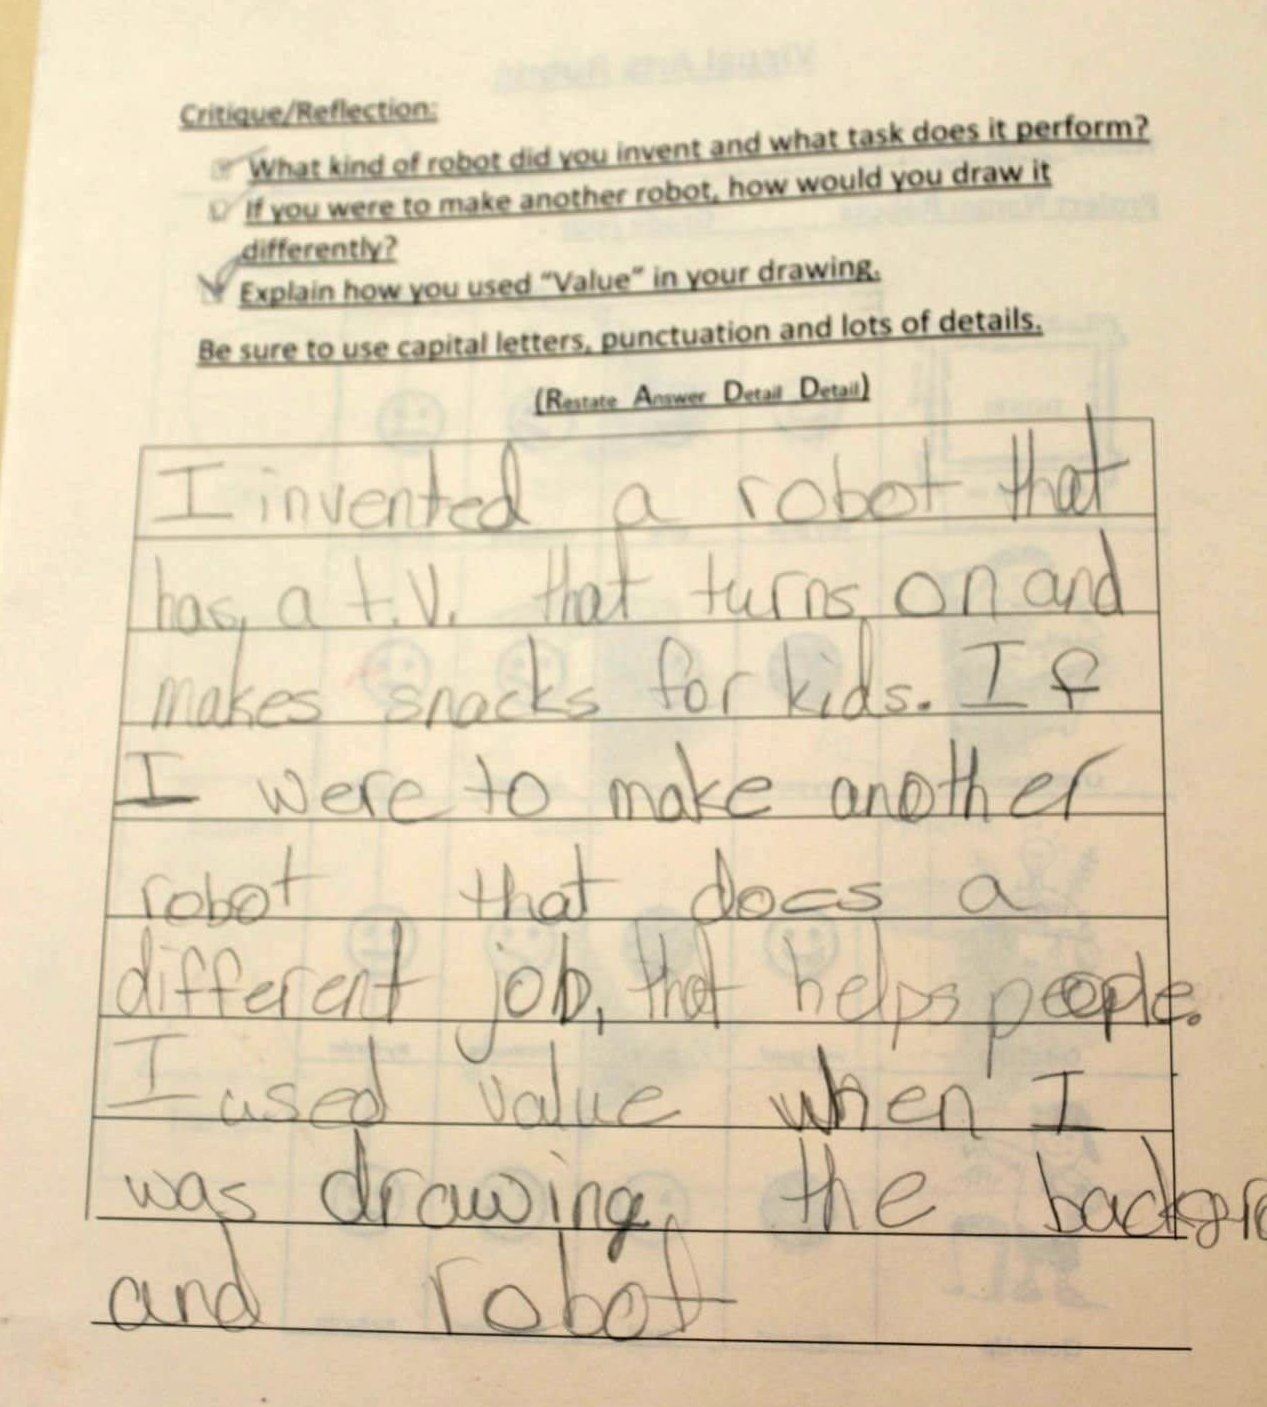 Critique/Reflection:
What kind of robot did you invent and what task does it perform?
If you were to make another robot, how would you draw it
differently?
Explain how you used “Value” in your drawing.
Be sure to use capital letters, punctuation and lots of details.
(Restate Answer Detail Detail)
I invented a robot that
has a t.V. that turns on and
makes snacks for kids. If
I were to make another
robot that does a
different job, that helps people.
I used value when I
was drawing the backgro
and robot